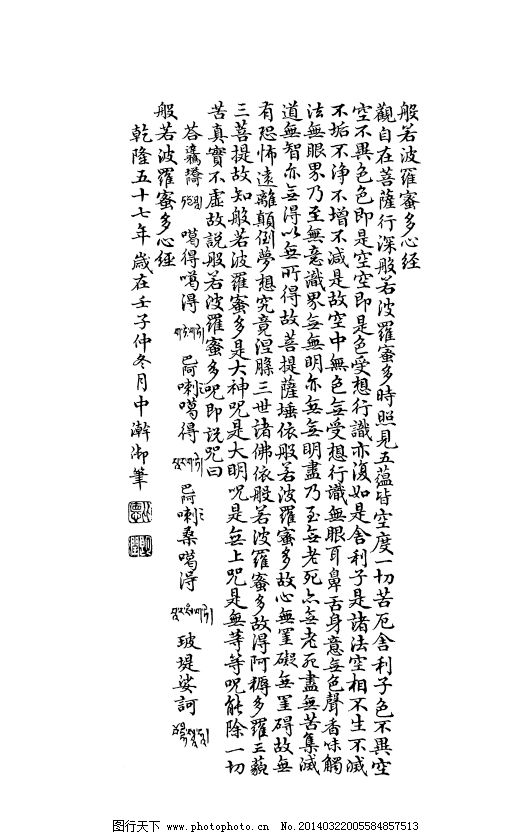 般若波羅蜜多心経
觀自在菩薩行深般若波羅蜜多時照見五蘊皆空度一切苦厄舍利子色不異空
空不異色色即是空空即是色受想行識亦復如是舍利子是諸法空相不生不滅
不垢不浄不增不减是故空中無色無受想行識無眼耳鼻舌身意無色聲香味觸
法無眼界乃至無意識界無無明亦無無明盡乃至無老死亦無老死盡無苦集滅
道無智亦無得以無所得故菩提薩埵依般若波羅蜜多故心無罣礙無罣碍故無
有恐怖遠離顛倒夢想究竟涅槃三世諸佛依般若波羅蜜多故得阿耨多羅三藐
三菩提故知般若波羅蜜多是大神呪是大明呪是無上呪是無等等呪能除一切
苦真實不虛故説般若波羅蜜多呪即説呪曰
噶得噶得 巴阿喇噶得 巴阿喇桑噶得 玻堤娑訶
般若波羅蜜多心経
乾隆五十七年歲在壬子仲冬月中澣御筆
图行天下 www.photophoto.cn No.20140322005584857513